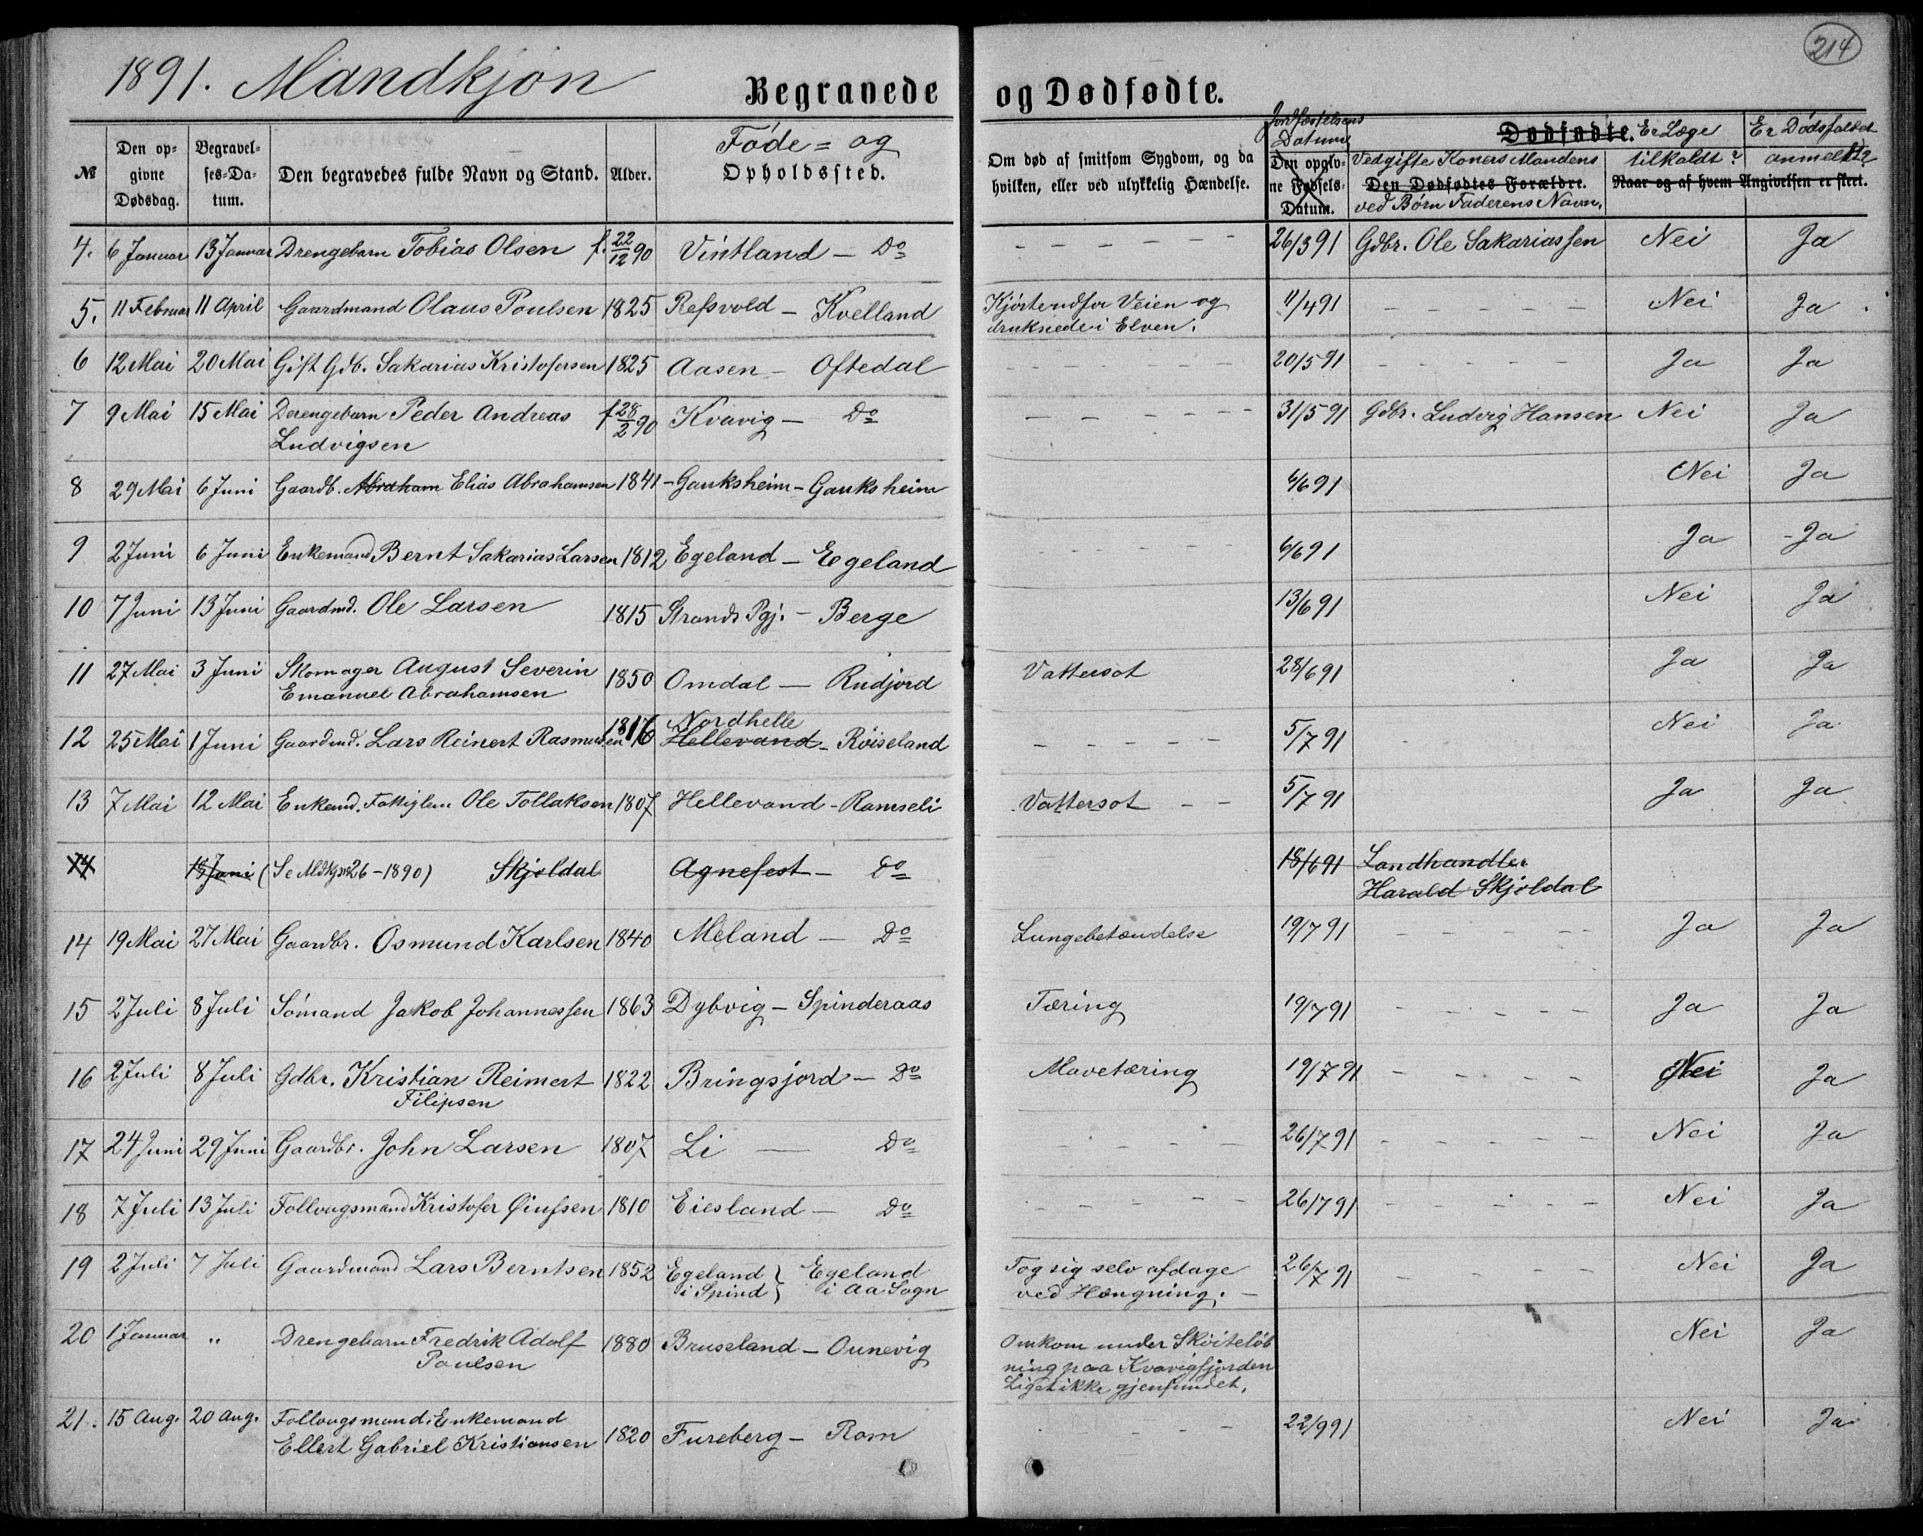 214
1891. Mandkjøn
Begravede og Dødfødte.
№
Den opgivne Dødsdag.
Begravelses-Datum.
Den begravedes fulde Navn og Stand.
Alder.
Føde= og Opholdssted.
Om død af smitsom Sygdom, og da hvilken, eller ved ulykkelig Hændelse.
Jordfæstelsens Datum
Den opgivne Fødsels-Datum.
Dødfødte.
Ved gifte Koners Mandens
Den Dødfødtes Forældre.
ved Børn Faderens Navn.
Er Læge tilkaldt?
Er Dødsfaldet anmeldt?
Naar og af hvem Angivelsen er skeet.
4. 6 Januar 13 Januar Drengebarn Tobias Olsen f. 22/12 90 Vintland — Do - - - - - - 26/3 91 Gdbr. Ole Sakariassen Nei Ja
5. 11 Februar 11 April Gaardmand Olaus Poulsen 1825 Refsvold — Kvelland Kjørte udfor Veien og 11/4 91 - - - - - Nei Ja
druknede i Elven.
6 12 Mai 20 Mai Gift Gdb. Sakarias Kristofersen 1825 Aasen — Oftedal - - - - - - 20/5 91 - - - - - Ja Ja
7 9 Mai 15 Mai Drengebarn Peder Andreas f 28/2 90 Kvavig — Do - - - - - - 31/5 91 Gdbr. Ludvig Hansen Nei Ja
Ludvigsen
8 29 Mai 6 Juni Gaardb. Abraham Elias Abrahamsen 1841 - Gauksheim - Gauksheim 6/6 91 Nei Ja
9 2 Juni 6 Juni Enkemand Bernt Sakarias Larsen 1812 Egeland — Egeland - - - - - 6/6 91 Ja - Ja
10 7 Juni 13 Juni Gaardmd. Ole Larsen 1815 Strands Pgj. - Berge 13/6 91 Nei Ja
11 27 Mai 3 Juni Skomager August Severin 1850 Omdal — Rudjord Vattersot 28/6 91 Ja Ja
Emanuel Abrahamsen
12 25 Mai 1 Juni Gaardmd. Lars Reinert Rasmussen 1816 Nordhelle Hellevand - Røiseland - - - - - 5/7 91 Nei Ja
13 7 Mai 12 Mai Enkemd. Fattiglem Ole Tollaksen 1807 Hellevand - Ramseli Vattersot - - 5/7 91 Ja Ja
14 18 Juni (Se 26 - 1890) Skjoldal Agnefest — Do 18/6 91 Landhandler
Harald Skjoldal
14 19 Mai 27 Mai Gaardbr. Osmund Karlsen 1840 Meland — Do Lungebetændelse 19/7 91 - - - - - Ja Ja
15 2 Juli 8 Juli Sømand Jakob Johannessen 1863 Dybvig — Spinderaas Tæring 19/7 91 - - - - - Ja Ja
16 2 Juli 8 Juli Gdbr. Kristian Reimert 1822 Bringsjord — Do Mavetæring 19/7 91 - - - - - Nei Ja
Filipsen
17 24 Juni 29 Juni Gaardbr. John Larsen 1807 Li — Do - - - - 26/7 91 - - - - - Nei Ja
18 7 Juli 13 Juli Follougsmand Kristofer Øiufsen 1810 Eiesland — Do - - - - 26/7 91 - - - - Nei Ja
19 2 Juli 7 Juli Gaardmand Lars Berntsen 1852 Egeland i Spind } Egeland i Aa Sogn Tog sig selv afdage 26/7 91 - - - - - Nei Ja
ved Hængning. -
20 1 Januar " Drengebarn Fredrik Adolf 1880 Bruseland — Ounevig Omkom under Skøiteløb Nei Ja
Poulsen ning paa Kvavigfjorden
Liget ikke gjenfundet.
21. 15 Aug. 20 Aug. Follougsmand. Enkemand
Ellert Gabriel Kristiansen 1820 Fureberg — Rom - - - 22/9 91 Nei Ja